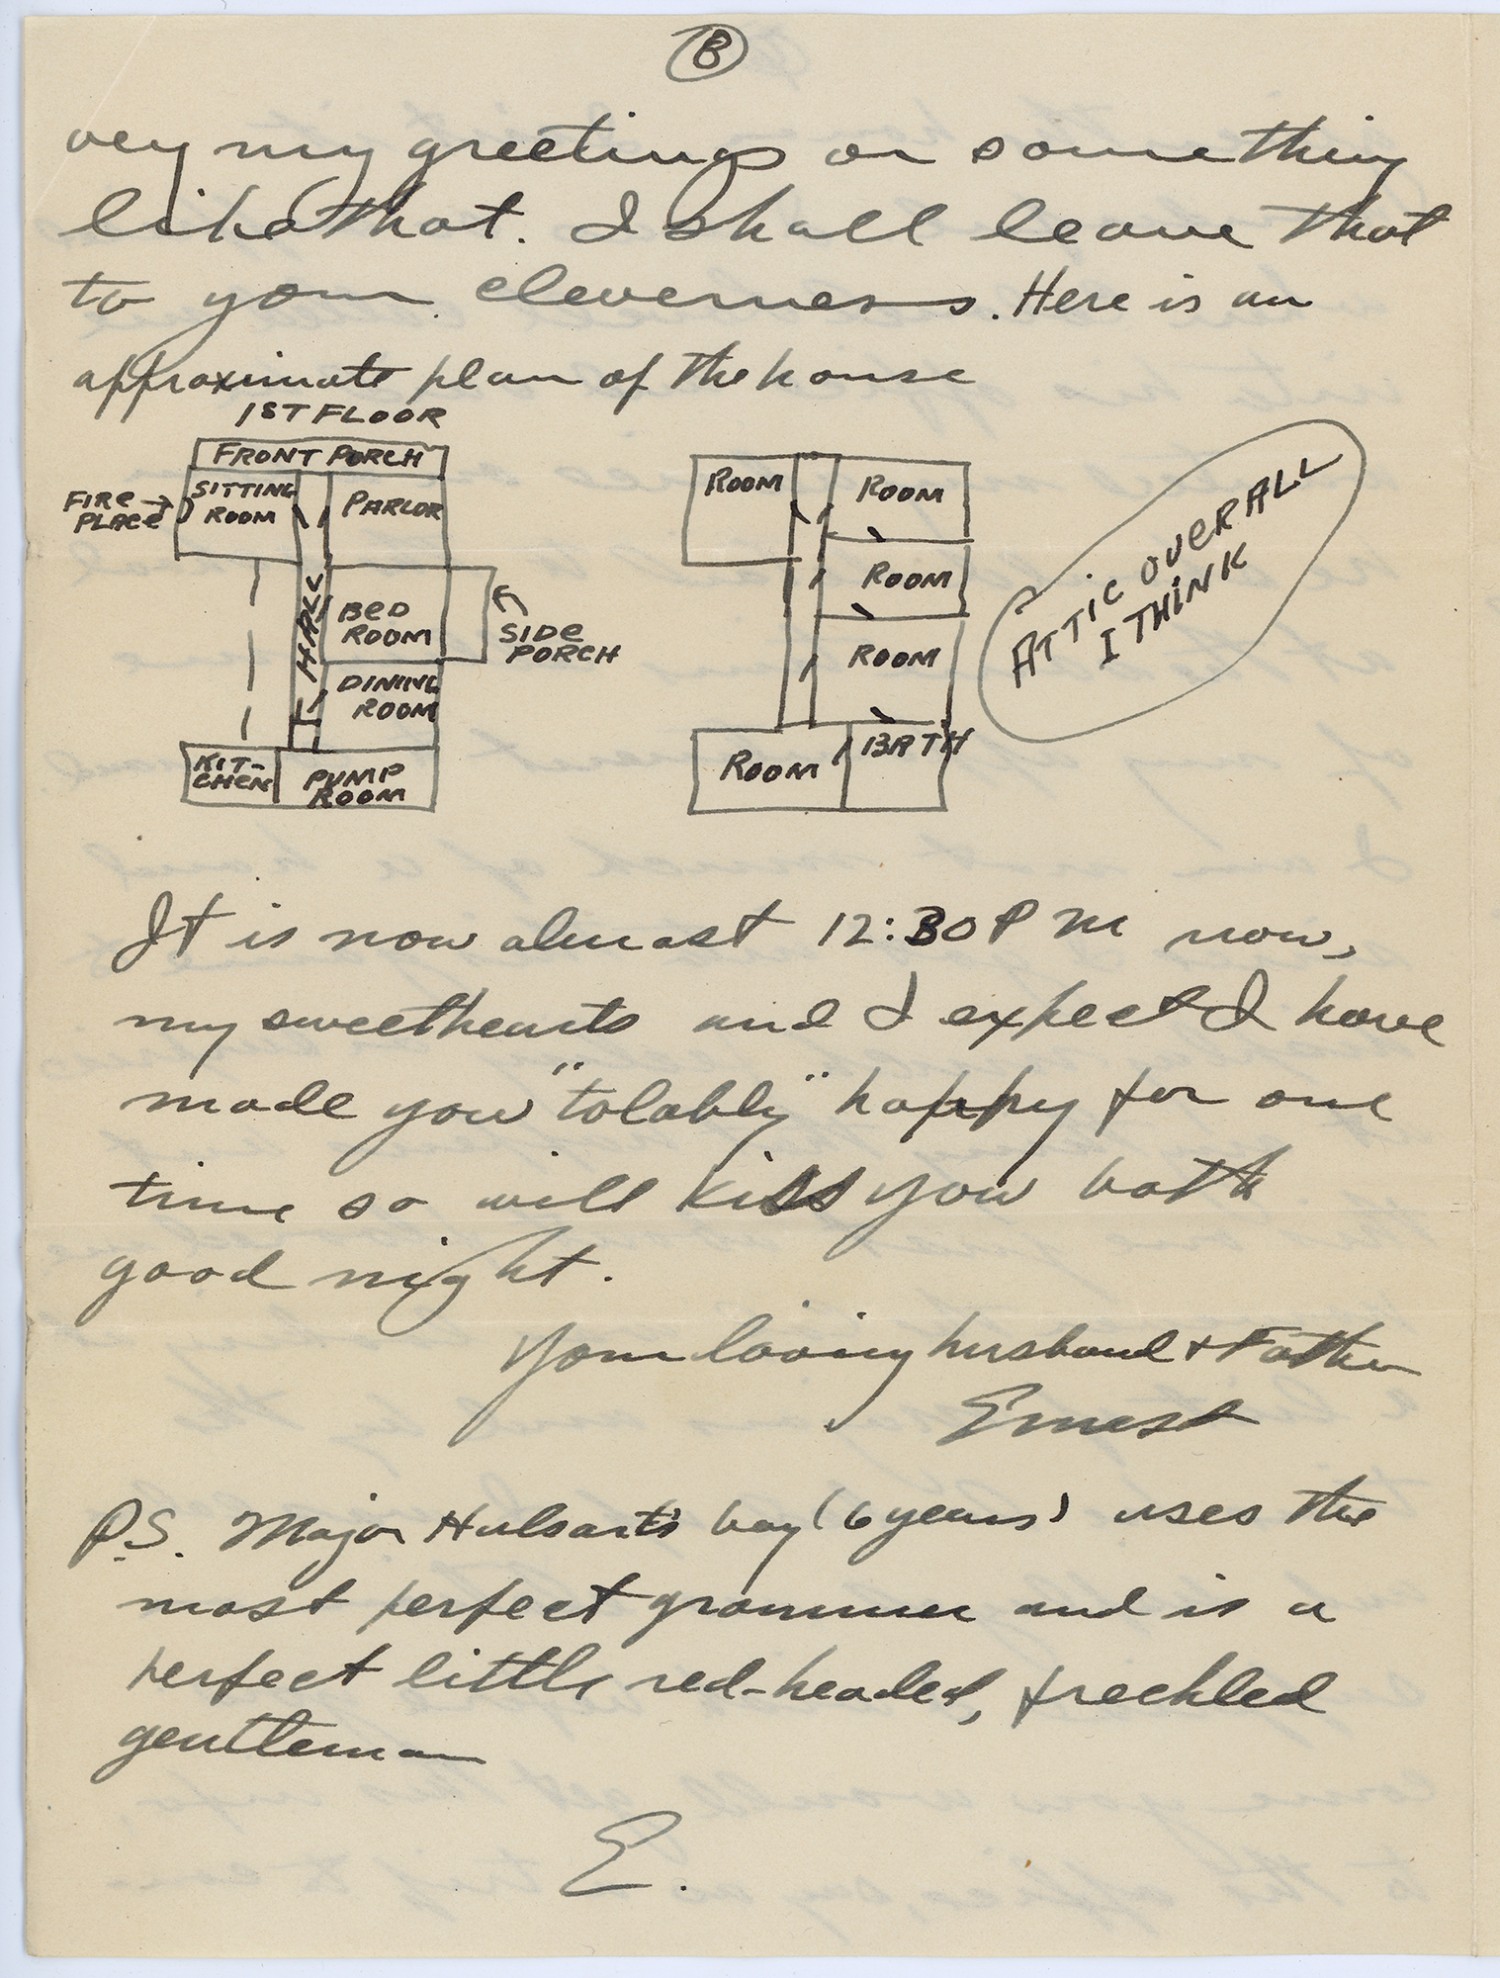 B
vey my greetings or something
like that. I shall leave that
to your cleverness. Here is an
approximate plan of the house
1ST FLOOR
FRONT PORCH
FIRE PLACE
SITTING ROOM
PARLOR
HALL
BED ROOM
SIDE PORCH
DINING ROOM
KIT-CHEN
PUMP ROOM
ROOM
ROOM
ROOM
ROOM
ROOM
BATH
ATTIC OVER ALL
I THINK
It is now almost 12:30 P M now,
my sweethearts and I expect I have
made you "tolably" happy for one
time so will kiss you both
good night.
Your loving husband + Father
Ernest
P.S. Major Hulsart's boy (6 years) uses the
most perfect grammer and is a
perfect little red-headed, freckled
gentleman
E.